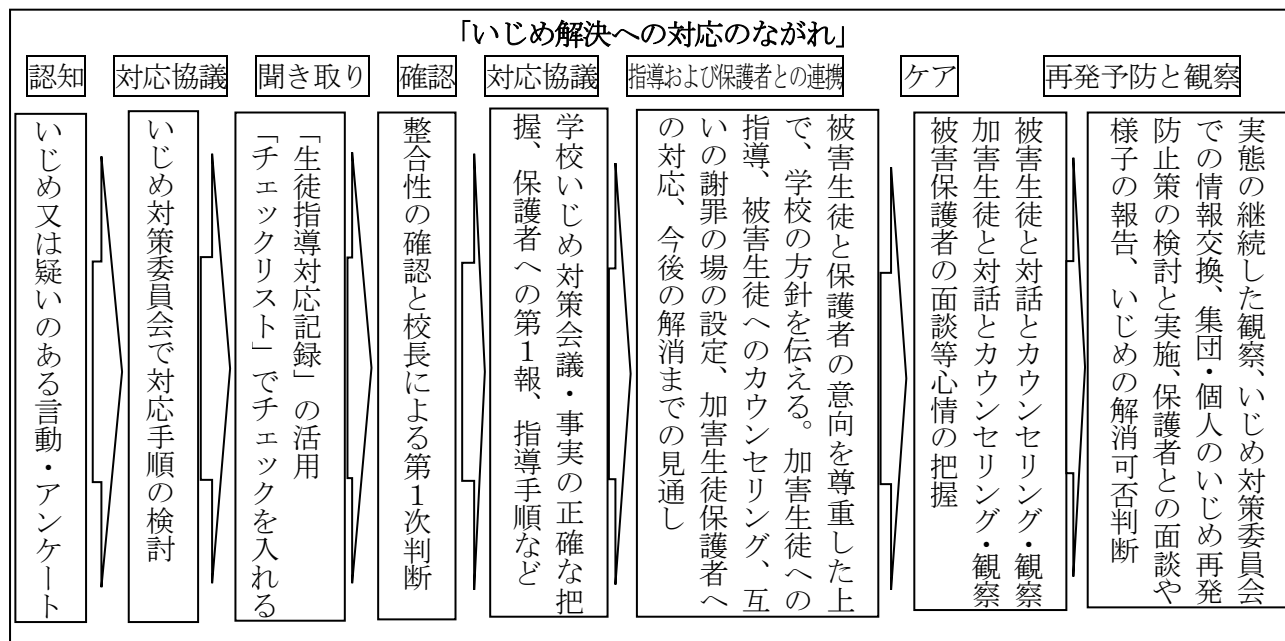 「いじめ解決への対応のながれ」
認知
対応協議
聞き取り
確認
対応協議
指導および保護者との連携
ケア
再発予防と観察
いじめ又は疑いのある言動・アンケート
いじめ対策委員会で対応手順の検討
「生徒指導対応記録」の活用
「チェックリスト」でチェックを入れる
整合性の確認と校長による第1次判断
学校いじめ対策会議・事実の正確な把
握、保護者への第1報、指導手順など
被害生徒と保護者の意向を尊重した上
で、学校の方針を伝える。加害生徒への
指導、被害生徒へのカウンセリング、互
いの謝罪の場の設定、加害生徒保護者へ
の対応、今後の解消までの見通し
被害生徒と対話とカウンセリング・観察
加害生徒と対話とカウンセリング・観察
被害保護者の面談等心情の把握
実態の継続した観察、いじめ対策委員会
での情報交換、集団・個人のいじめ再発
防止策の検討と実施、保護者との面談や
様子の報告、いじめの解消可否判断